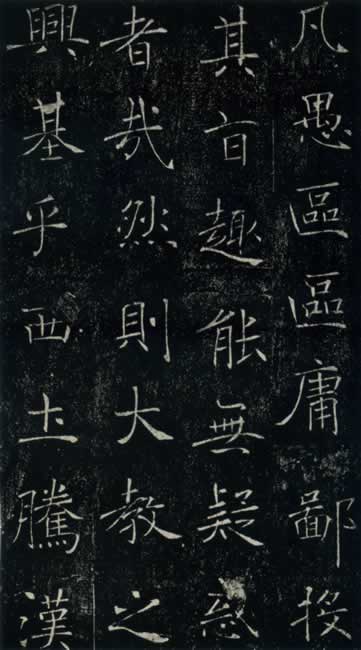 凡愚區區庸鄙投
其旨趣能無疑惑
者哉然則大教之
興基乎西土騰漢